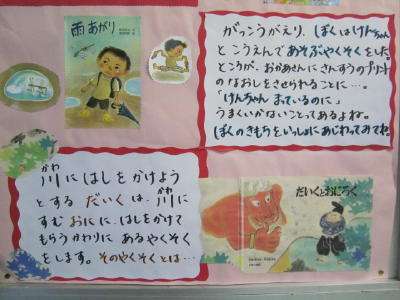 雨あがり
がっこうがえり、ぼくはけんちゃん
とこうえんであそぶやくそくをした。
ところが、おかあさんにさんすうのプリント
のなおしをさせられることに…。
「けんちゃん まっているのに」
うまくいかないことってあるよね。
ぼくのきもちをいっしょにあじわってみてね。
川にはしをかけよう
かわ
とする だいくは、川に
かわ
すむ おにに、はしをかけて
もらうかわりに あるやくそく
をします。そのやくそくとは…
だいくとおにろく